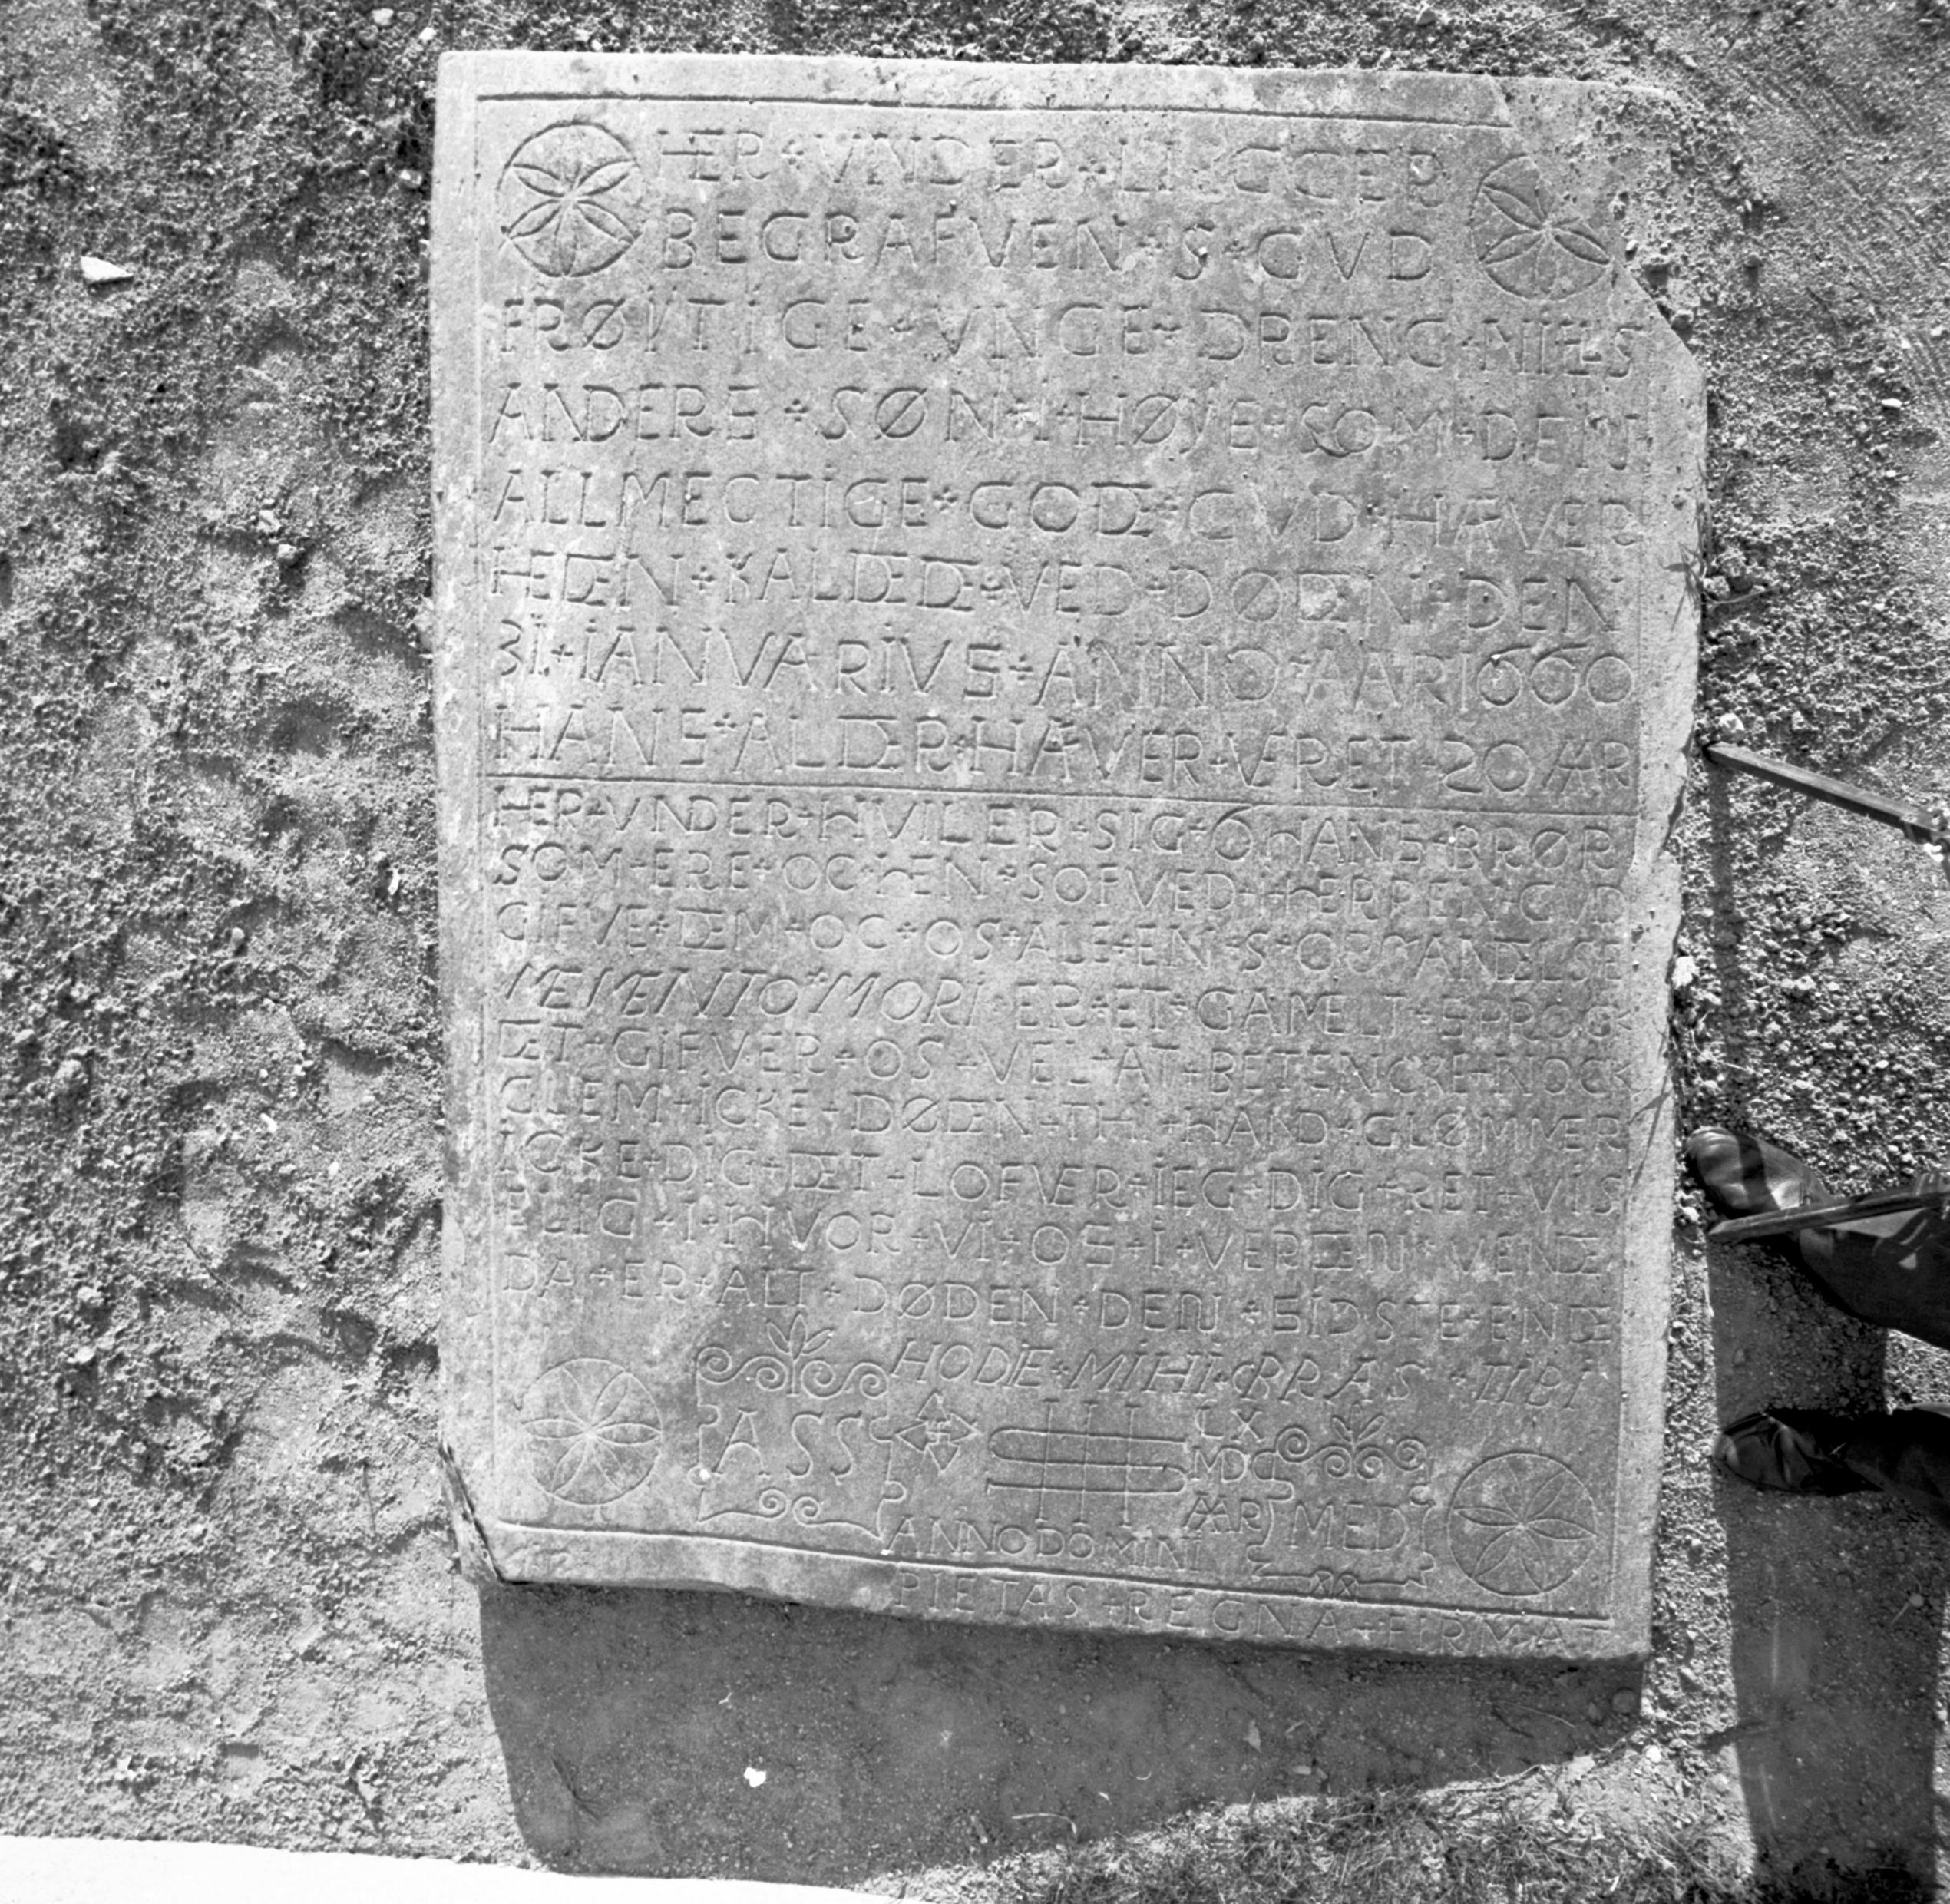 HER + VNDER + LIGGER
BEGRAFVEN + S + GVD
FRØITIGE + VNGE + DRENG + NIELS
ANDERE + SØN + I + HØJE + SOM + DEN
ALLMECTIGE + GODE + GVD + HÆVER
HEDEN + KALDEDE + VED + DØDEN + DEN
31 + IANVARIVS + ANNO + AAR 1660
HANS + ALDER + HAVER + VERET + 20 AAR
HER + VNDER + HVILER + SIG + 6 HANS + BRØR
SOM + ERE + OC + HEN + SOFVED + I HERREN + GVD
GIFVE + DEM + OC + OS + ALE + EN + S + OPVANDELSE
MEMENTO + MORI + ER + ET + GAMELT + SPROCK
DET + GIFVER + OS + VEL + AT + BETENCKE + NOCK
GLEM + ICKE + DØDEN + THI + HAND + GLØMMER
ICKE + DIG + DET + LOFVER + IEG + DIG + RET + VIIS
ELIG + I + HVOR + VI + OS + I + VERDEN + VENDE
DA + ER + ALT + DØDEN + DEN + SIDSTE + ENDE
HODIE + MIHI + CRRAS + TIBI
ASS
LX
MDC
AAR MED
ANNO DOMINI
PIETAS + REGNA + FIRMAT